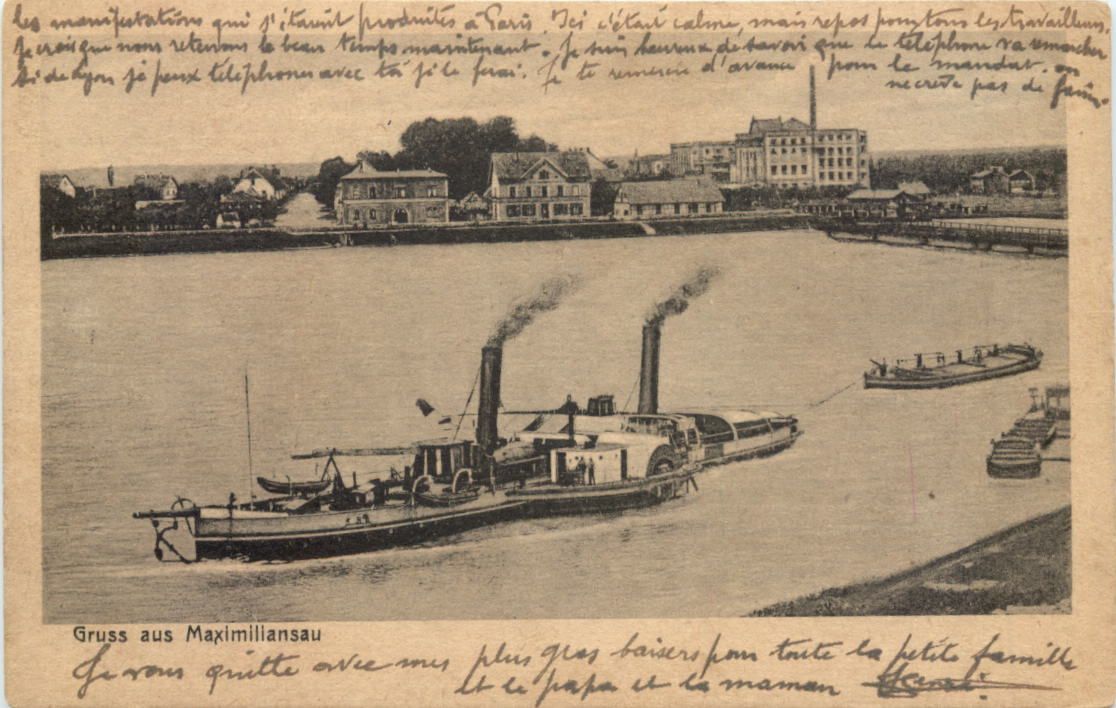 les manifestations qui s'étaient produites à Paris. Ici c'était calme, mais repos pour tous les travailleurs.
Je crois que nous retenons le beau temps maintenant. Je suis heureux de savoir que le téléphone va remarcher
si de Lyon je peux téléphoner avec toi je le ferai. Je te remercie d'avance pour le mandat. on
ne crève pas de faim.
Gruss aus Maximiliansau
Je vous quitte avec mes plus gros baisers pour toute la petite famille
et le papa et la maman Henri.